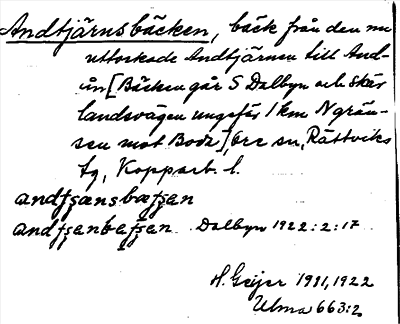 Andtjärnsbäcken, bäck från den nu
uttorkade Andtjärnen till And-
ån [Bäcken går S Dalbyn och skär
landsvägen ungefär 1 km N grän-
sen mot Boda] Ore sn, Rättviks
tg, Kopparb. l.
andʃænsbæʃæn
andʃænbæʃæn Dalbyn 1922:2:17
H. Geijer 1911, 1922
Ulma 663:2